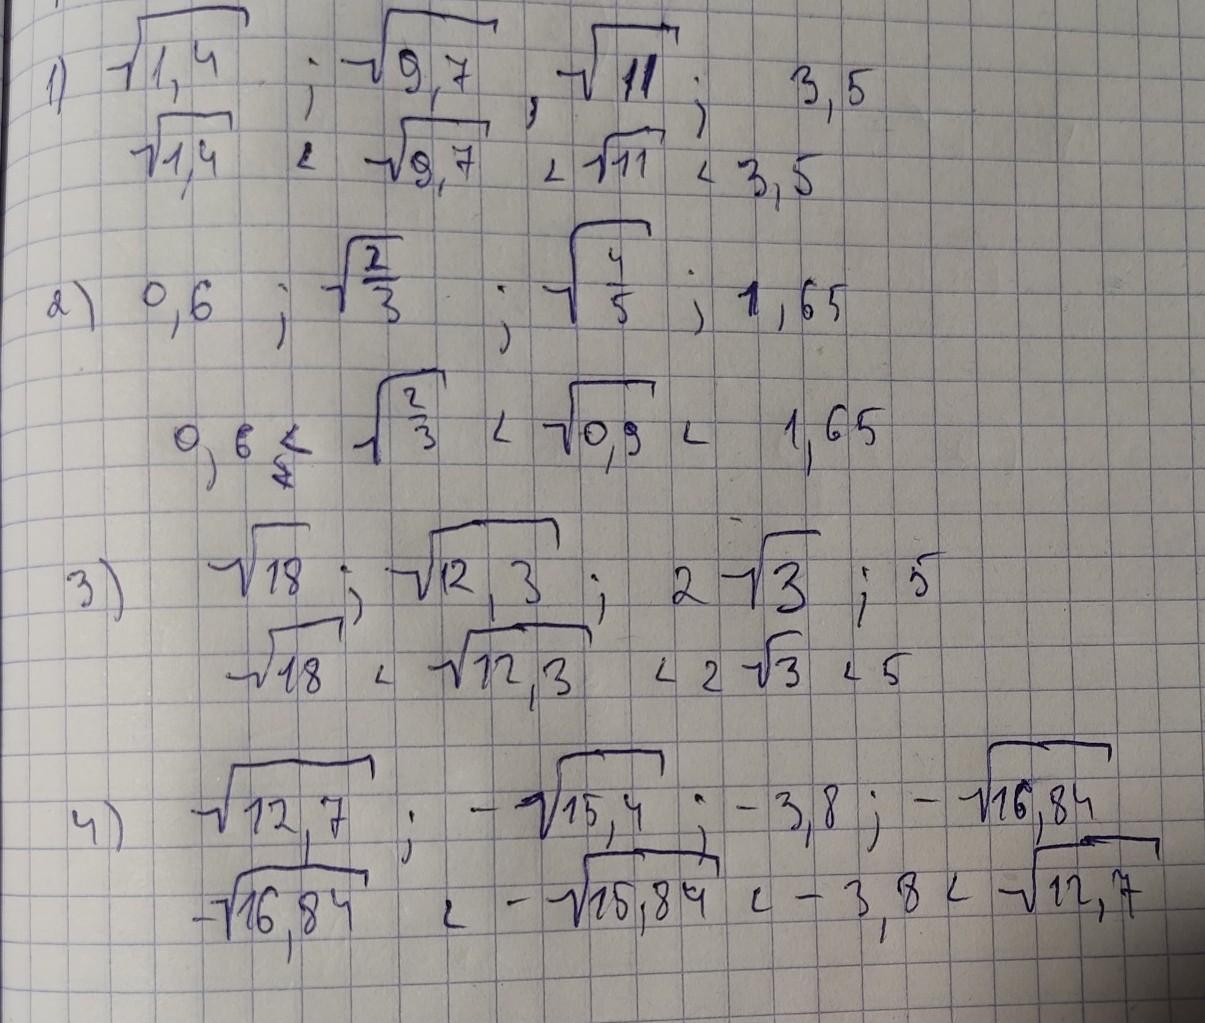 1) √1,4 ; √9,7 , √11 ; 3,5
√1,4 < √9,7 < √11 < 3,5
2) 0,6 ; √2/3 ; √4/5 ; 1,65
0,6 < √2/3 < √0,9 < 1,65
3) √18 ; √12,3 ; 2√3 ; 5
√18 < √12,3 < 2√3 < 5
4) √12,7 ; -√15,4 ; -3,8 ; -√16,84
-√16,84 < -√15,84 < -3,8 < √12,7